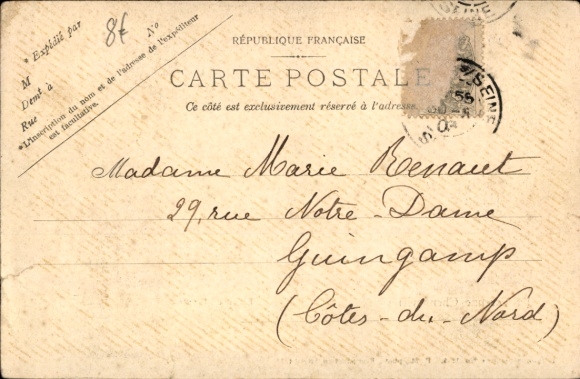 * Expédié par
N°
M
Demt à
Rue
*L'inscription du nom et de l'adresse de l'expéditeur
est facultative.
8€
RÉPUBLIQUE FRANÇAISE
CARTE POSTALE
Ce côté est exclusivement réservé à l'adresse.
SEINE
Madame Marie Renaut
29, rue Notre-Dame
Guingamp
(Côtes-du-Nord)